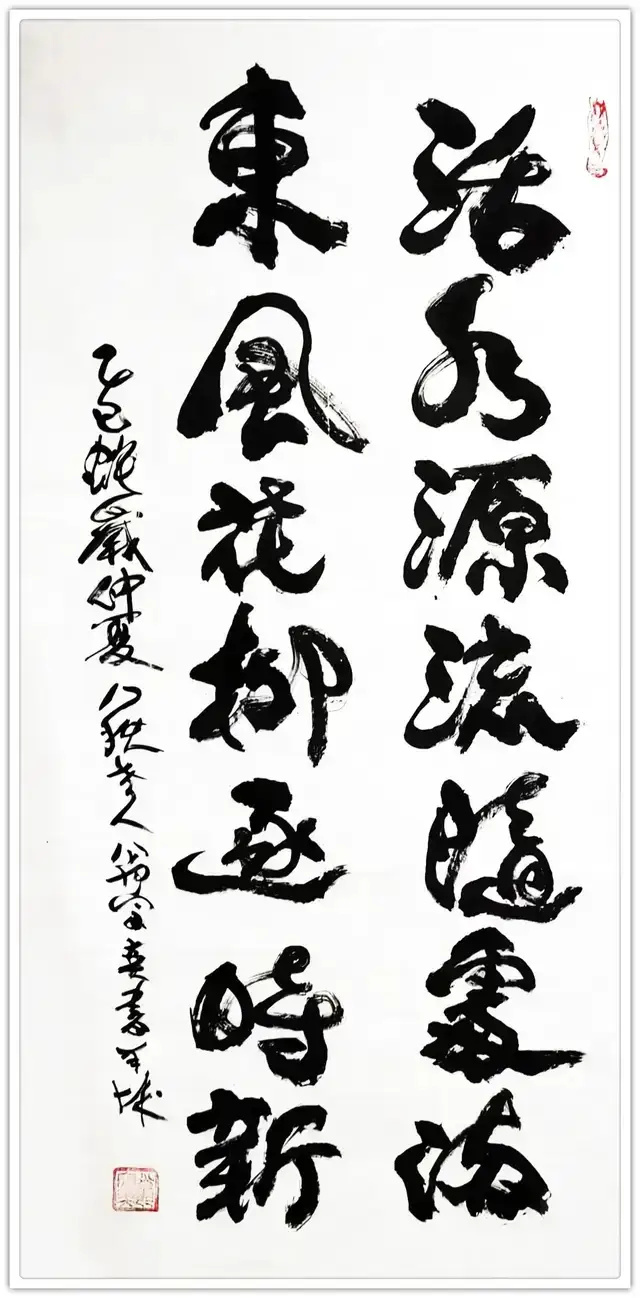 活水源流隨處滿
東風花柳逐時新
乙巳蛇歲仲夏八秩老人翁英書城